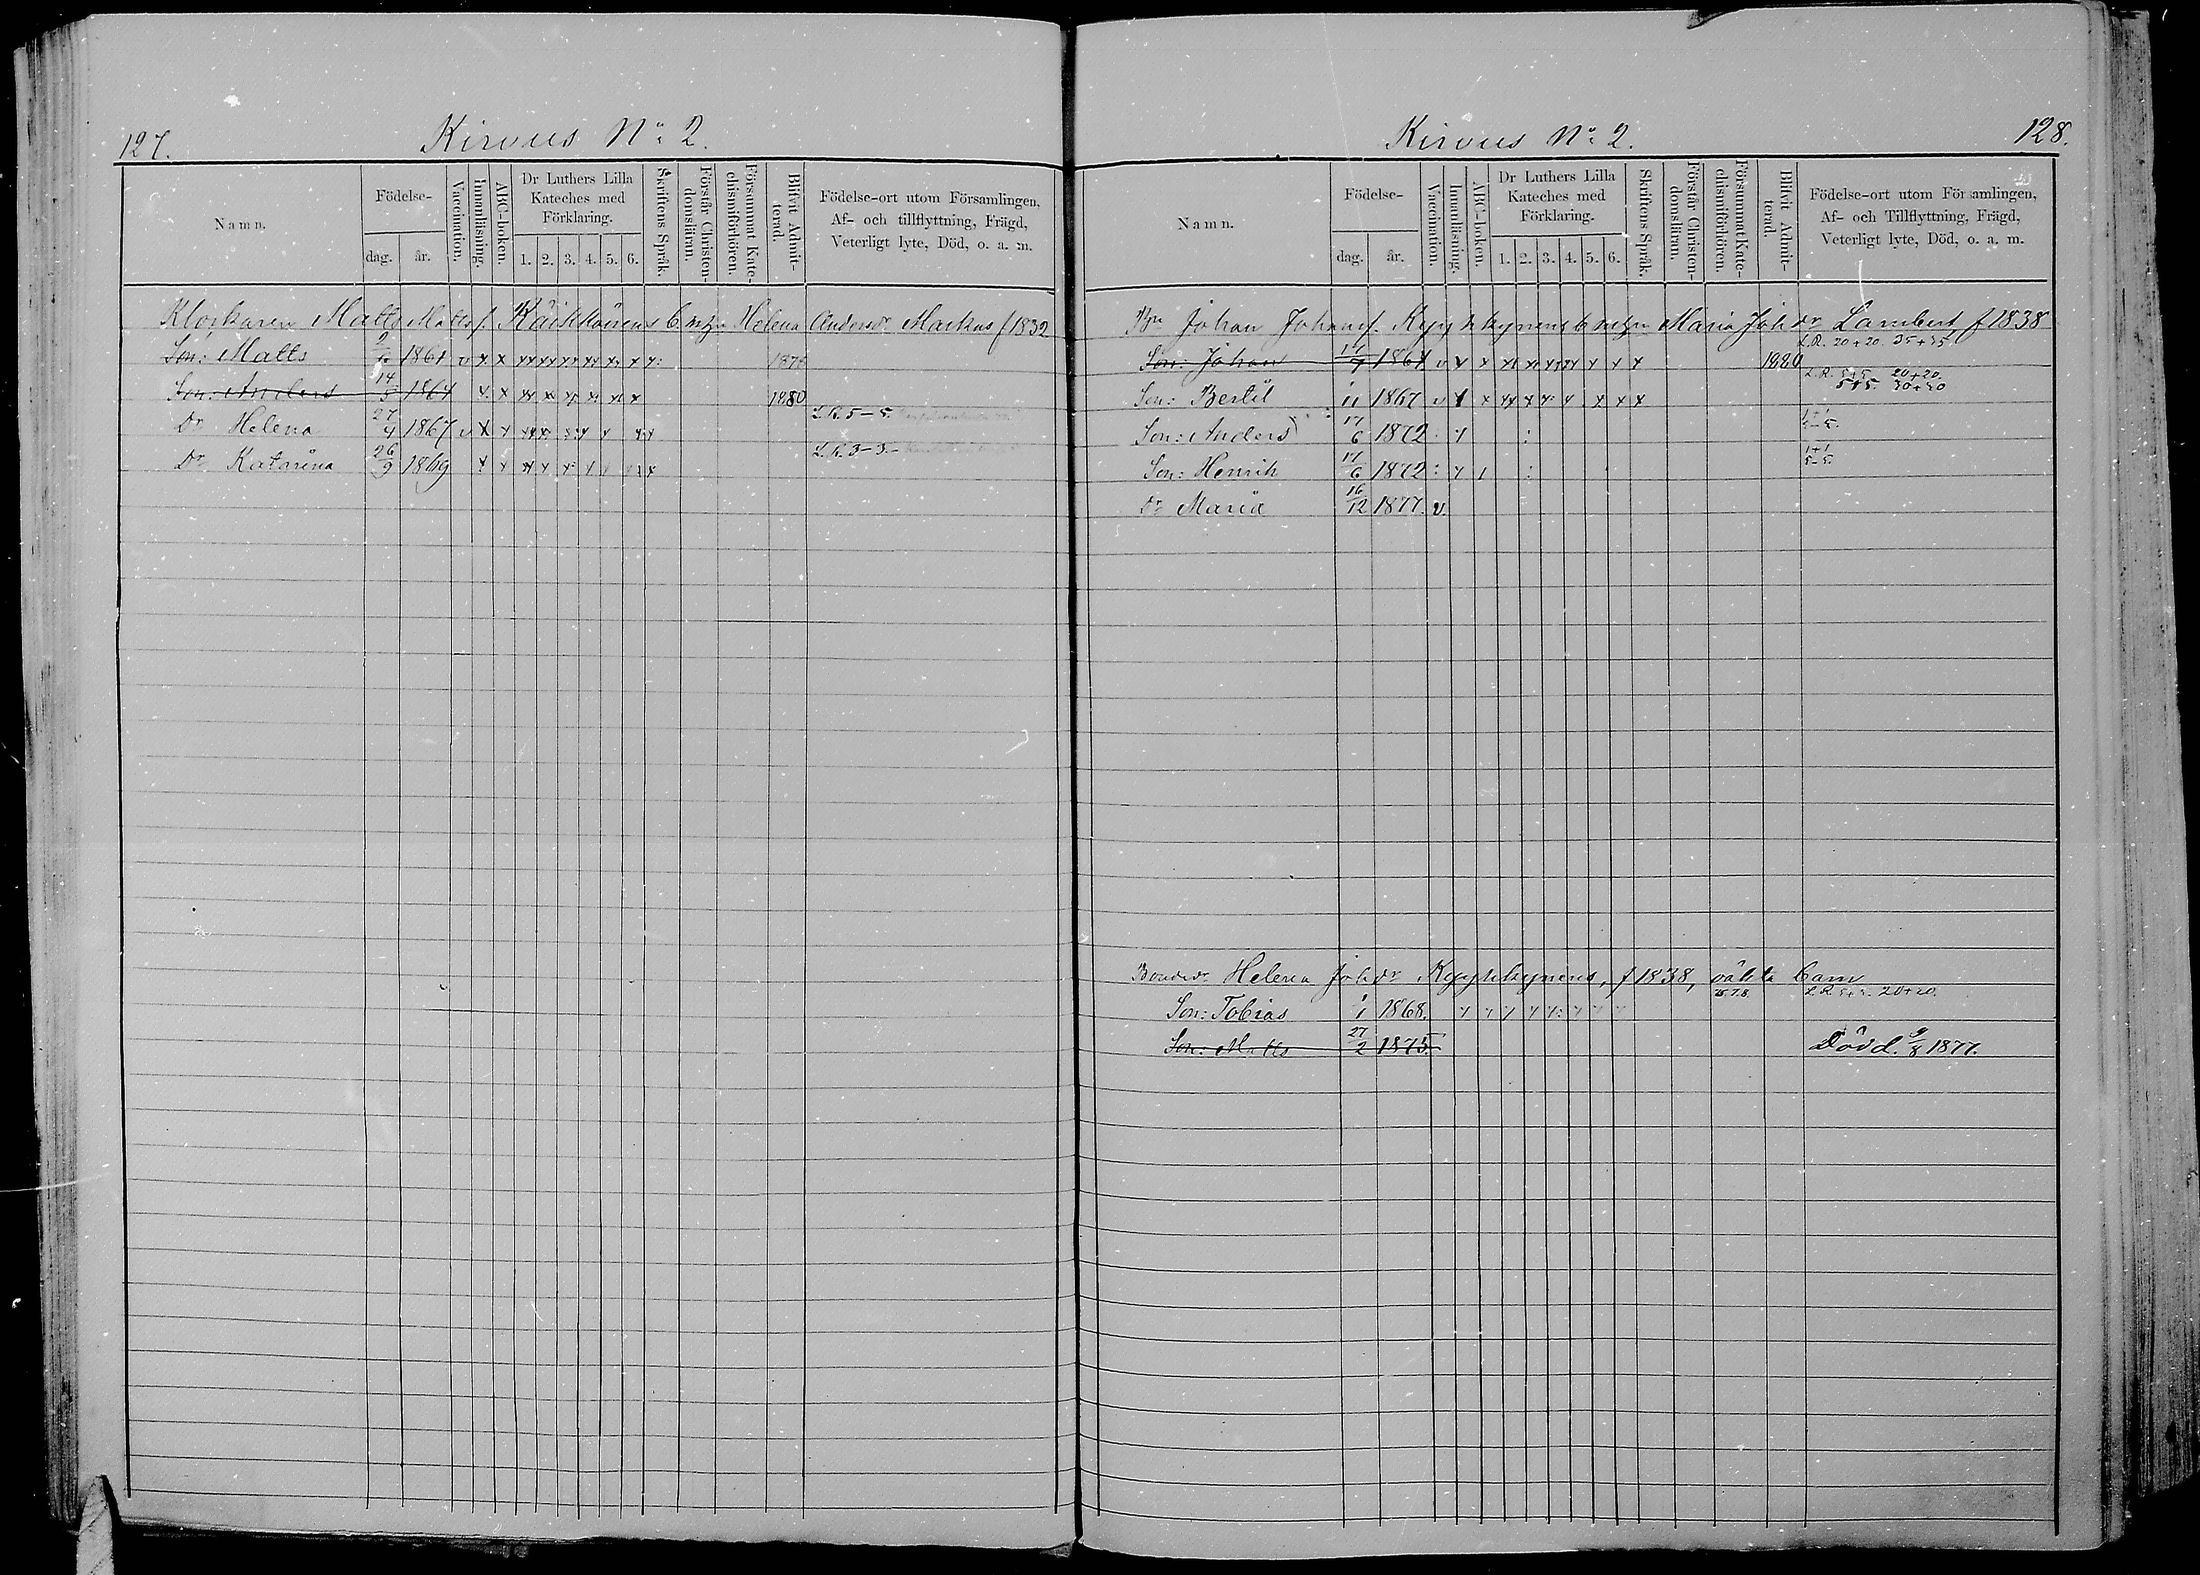 127.
Kirvus No 2.
Namn.
Födelse-
dag.
år.
Vaccination.
Innanläsning.
ABC-boken.
Dr Luthers Lilla
Kateches med
Förklaring.
1. 2. 3. 4. 5. 6.
Skriftens Språk.
Förstår Christen-
domsläran.
Försummat Kate-
chismiförhören.
Blifvit Admit-
terad.
Födelse-ort utom Församlingen,
Af- och tillflyttning, Frägd,
Veterligt lyte, Död, o. a. m.
Klockaren Matts Matts f. Käikkönens b. m hu Helena Andersdr Markus f 1832
Son: Matts 1861 v x x
Son: Anders 14/5 1864 1880
Dr Helena 27/4 1867 v x L.R. 5-5.
Dr Katarina 26/9 1869 L.R. 3-3.
128.
Kirvus No 2.
Namn.
Födelse-
dag.
år.
Vaccination.
Innanläsning.
ABC-boken.
Dr Luthers Lilla
Kateches med
Förklaring.
1. 2. 3. 4. 5. 6.
Skriftens Språk.
Förstår Christen-
domsläran.
Försummat Kate-
chismiförhören.
Blifvit Admit-
terad.
Födelse-ort utom Församlingen,
Af- och Tillflyttning, Frägd,
Veterligt lyte, Död, o. a. m.
Johan Johans f. Maria Joh dr Lambert f 1838
Son: Johan 1864 1880 L.R. 20+20. 35+35
Son: Bertil 1867 L.R. 5+5. 20+20. 5+5. 30+30
Son: Anders 17/6 1872 1+1 5-5.
Son: Henrik 17/6 1872 1+1 5-5.
Dr Maria 16/12 1877. v.
Bondedr Helena Joh dr f 1838, oäkta barn
Son: Tobias 1868. L.R. 5+5. 20+20.
Son: Matts 27/2 1875. Död d. 9/8 1877.